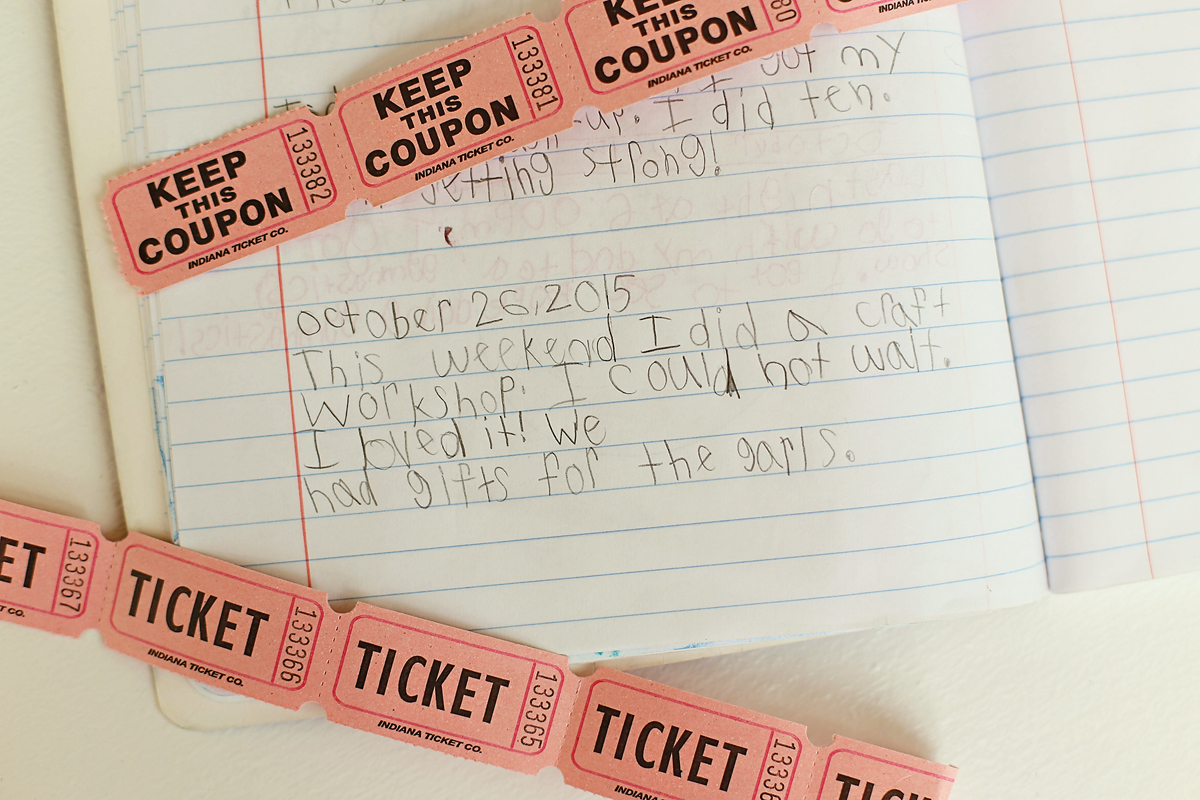 KEEP
THIS
COUPON
INDIANA TICKET CO.
80
KEEP
THIS
COUPON
INDIANA TICKET CO.
133381
KEEP
THIS
COUPON
INDIANA TICKET CO.
133382
got my
I did ten.
getting strong!
october 26, 2015
This weekend I did a craft
workshop. I could not wait.
I loved it! we
had gifts for the garls.
ET
133367
TICKET
INDIANA TICKET CO.
133366
TICKET
INDIANA TICKET CO.
133365
TICKET
INDIANA
13336
TICK